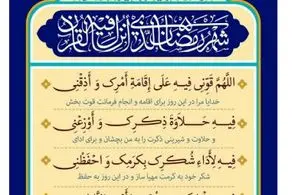 شهر رمضان الذی انزل فیه القرآن
اَللّهُمَّ قَوِّنی فیهِ عَلی اِقامَةِ اَمرِکَ وَ اَذِقنی
خدایا مرا در این روز برای اقامه و انجام فرمانت قوت بخش
فیهِ حَلاوَةَ ذِکرِکَ وَ اَوزِعنی
و حلاوت و شیرینی ذکرت را به من بچشان و برای ادای
فیهِ لِاَداءِ شُکرِکَ بِکَرَمِکَ وَ احفَظنی
شکر خود به کرمت مهیا ساز و در این روز به حفظ